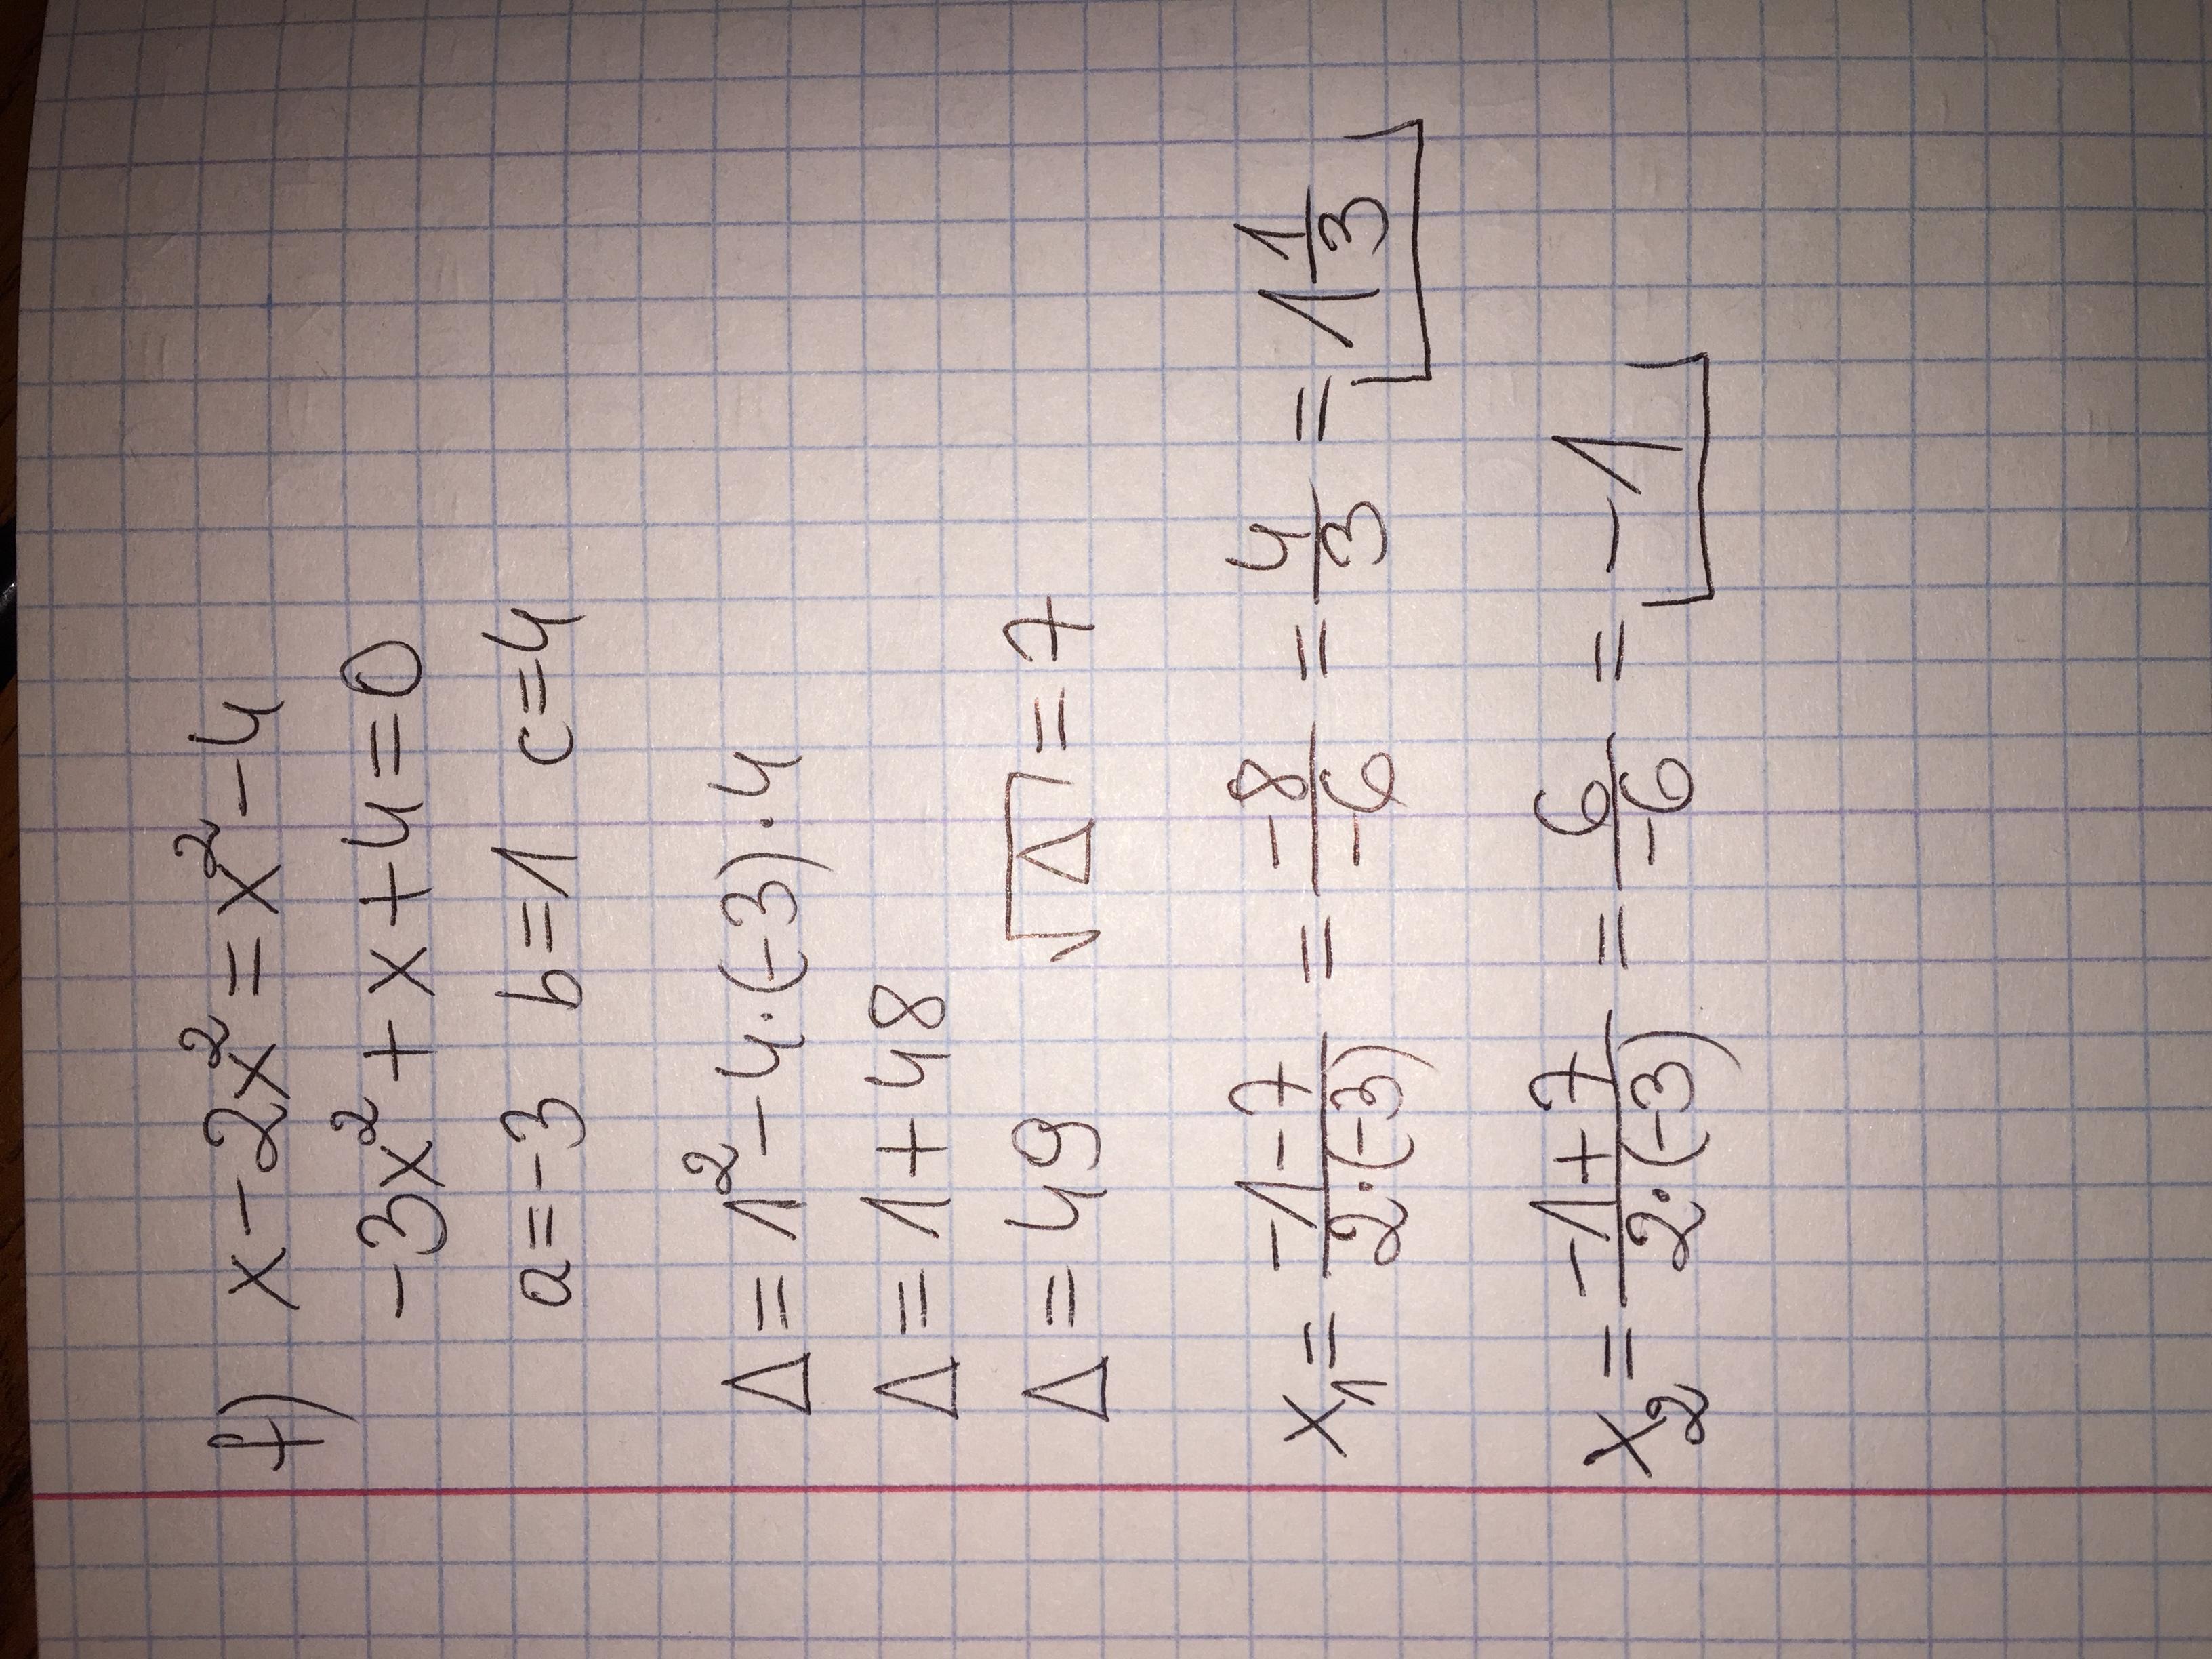 f) x-2x²=x²-4
-3x²+x+4=0
a=-3 b=1 c=4
Δ=1²-4·(-3)·4
Δ=1+48
Δ=49 √Δ=7
x₁=\frac{-1-7}{2·(-3)}=\frac{-8}{-6}=\frac{4}{3}=1\frac{1}{3}
x₂=\frac{-1+7}{2·(-3)}=\frac{6}{-6}=-1